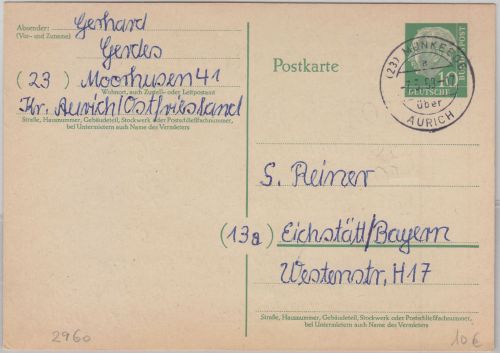 Absender: Gerhard
(Vor- und Zuname)
Gerdes
(23) Moorhusen 41
Wohnort, auch Zustell- oder Leitpostamt
Kr. Aurich/Ostfriesland
Straße, Hausnummer, Gebäudeteil, Stockwerk oder Postschließfachnummer,
bei Untermietern auch Name des Vermieters
2960
Postkarte
10
DEUTSCHE
POST
(23)
über
AURICH
S. Reiner
(13a) Eichstätt/Bayern
Westenstr. H17
Straße, Hausnummer, Gebäudeteil, Stockwerk oder Postschließfachnummer,
bei Untermietern auch Name des Vermieters
10€